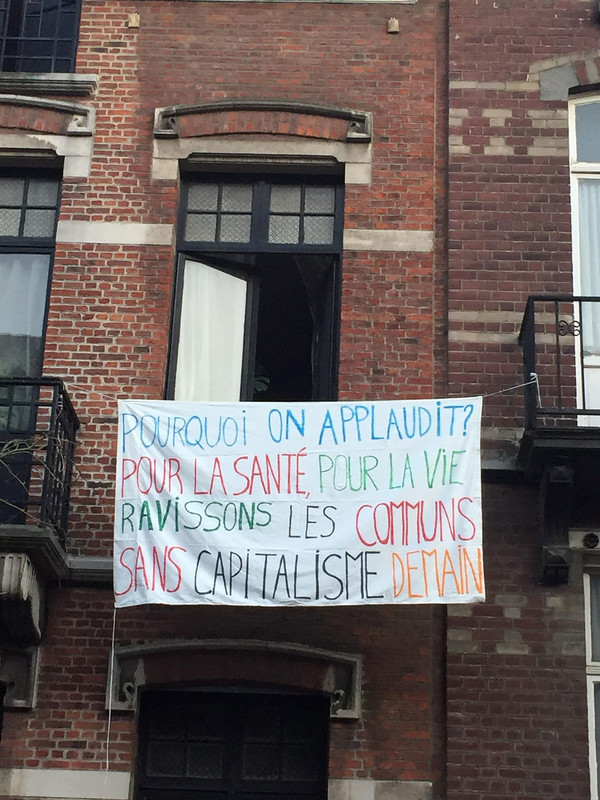 POURQUOI ON APPLAUDIT?
POUR LA SANTÉ, POUR LA VIE
RAVISSONS LES COMMUNS
SANS CAPITALISME DEMAIN